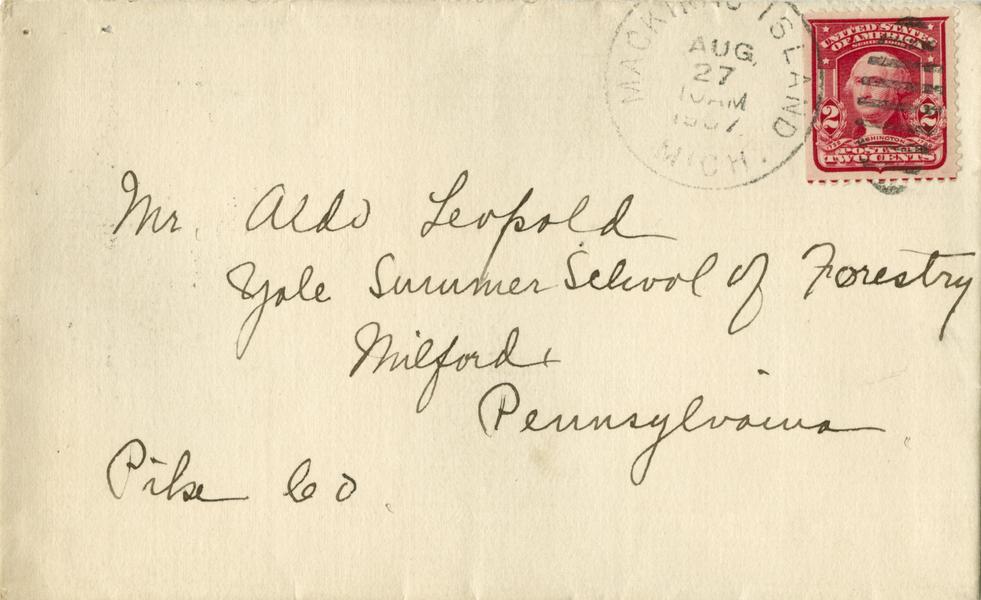 MACKINAC ISLAND
AUG.
27
10AM
1907
MICH.
UNITED STATES
OF AMERICA
SERIES 1902
2 2
WASHINGTON
POSTAGE
TWO CENTS
Mr. Aldo Leopold
Yale Summer School of Forestry
Milford
Pennsylvania
Pike Co